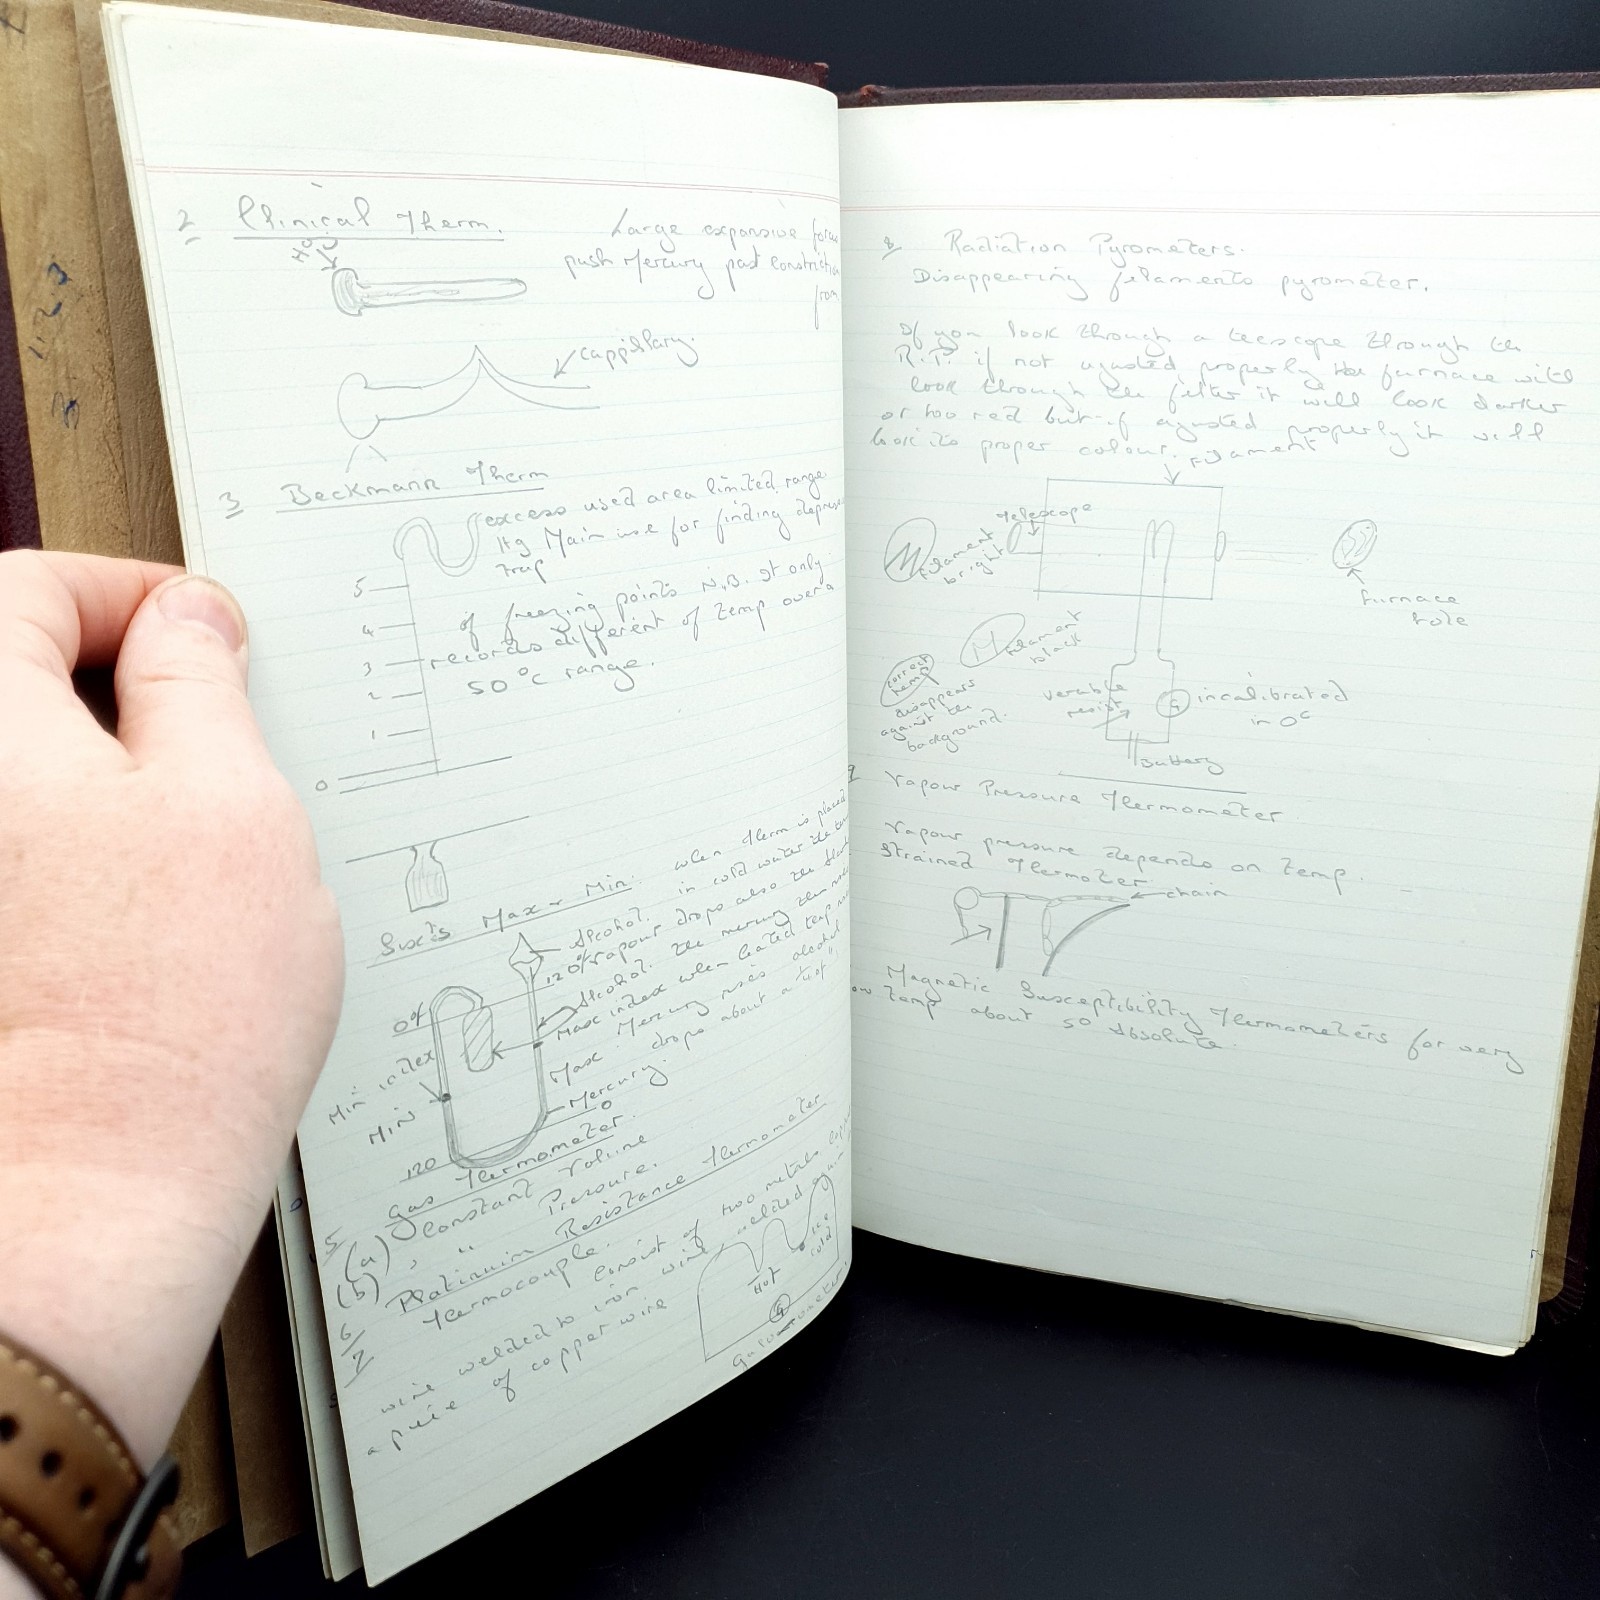 2 Clinical Therm.
Large expansive force
push Mercury past constriction
from
Hg
cappillary.
3 Beckmann Therm
excess used area limited range
Hg Main use for finding depress
trap
of freezing points N.B. It only
records different of temp over a
50°C range.
5
4
3
2
1
0
Six's Max & Min: when therm is placed
in cold water the
Alcohol.
vapour drops also the
120°f
Alcohol. the mercury then
0°f
Max index when heated temp
Max. Mercury rises alcohol
drops about a "foot"
Min index
MIN
Mercury
0
120
5 Gas Thermometer.
(a) Constant Volume
(b) " Pressure.
6 Platinum Resistance Thermometer
7 Thermocouple. consist of two metals
wire welded to iron wire welded again
a peice of copper wire
Hot
Ice cold
G
Galvanometer.
1.2.3
3
8 Radiation Pyrometers.
Disappearing filaments pyrometer.
If you look through a tescope through the
R.P. if not ajusted properly the furnace will
look through the filter it will look darker
or too red but if ajusted properly it will
look its proper colour.
Filament
Telescope
filament bright
furnace hole
filament black
correct temp
disappears
against the
background.
verable resist
G
incalibrated
in 0c
Battery
9 Vapour Pressure Thermometer
Vapour pressure depends on temp.
Strained Thermoter
chain
Magnetic Susceptibility Thermometers for very
low temp about 5° Absolute.